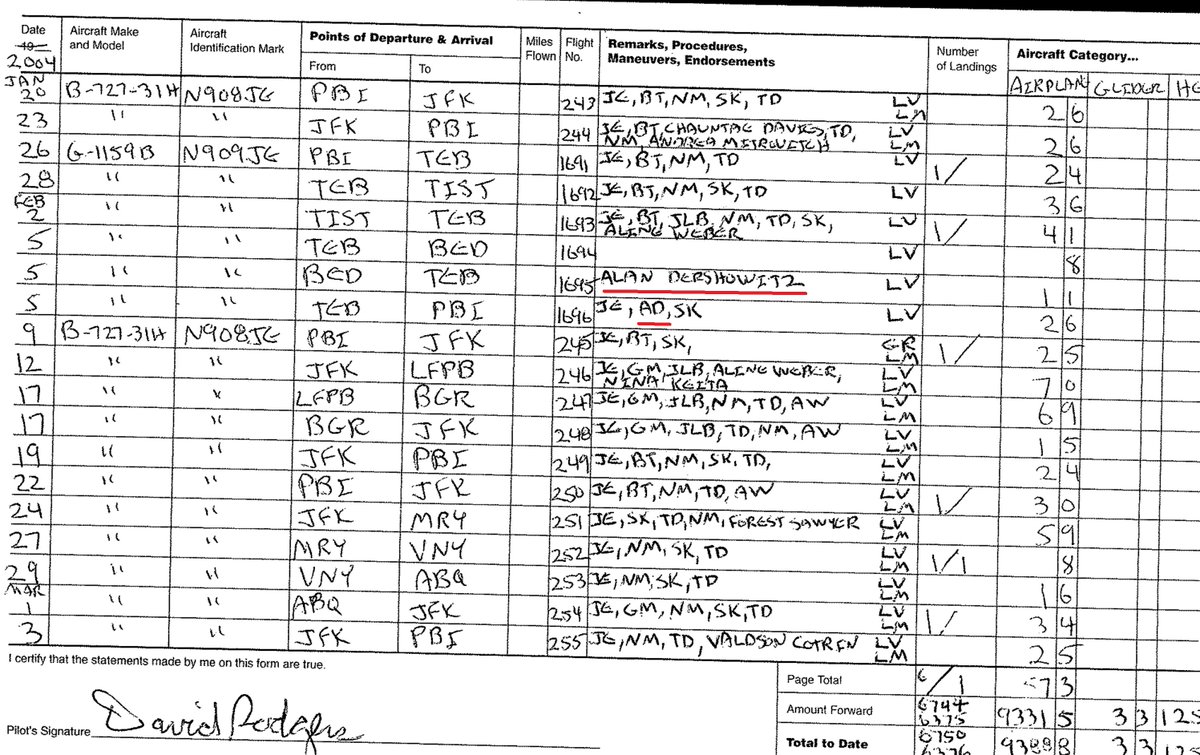 Date Aircraft Make and Model Aircraft Identification Mark Points of Departure & Arrival Miles Flown Flight No. Remarks, Procedures, Maneuvers, Endorsements Number of Landings Aircraft Category...
2004 From To AIRPLAN GLIDER HE
JAN 20 B-727-31H N908JE PBI JFK 243 JE, BT, NM, SK, TD LV LM 2 6
23 " " JFK PBI 244 JE, BT, CHAUNTAE DAVIES, TD, NM, ANDREA MITROVICH LV LM 2 6
26 G-1159B N909JE PBI TEB 1691 JE, BT, NM, TD LV 1/ 2 4
28 " " TEB TIST 1692 JE, BT, NM, SK, TD LV 3 6
FEB 2 " " TIST TEB 1693 JE, BT, JLB, NM, TD, SK, ALINE WEBER LV 1/ 4 1
5 " " TEB BED 1694 LV 8
5 " " BED TEB 1695 ALAN DERSHOWITZ LV 1 1
5 " " TEB PBI 1696 JE, AD, SK LV 2 6
9 B-727-31H N908JE PBI JFK 245 JE, BT, SK, LM 1/ 2 5
12 " " JFK LFPB 246 JE, GM, JLB, ALINE WEBER, NINA KEITA LV LM 7 0
17 " " LFPB BGR 247 JE, GM, JLB, NM, TD, AW LV LM 6 9
17 " " BGR JFK 248 JE, GM, JLB, TD, NM, AW LV LM 1 5
19 " " JFK PBI 249 JE, BT, NM, SK, TD, LV LM 2 4
22 " " PBI JFK 250 JE, BT, NM, TD, AW LV LM 1/ 3 0
24 " " JFK MRY 251 JE, SK, TD, NM, FOREST SAWYER LV LM 5 9
27 " " MRY VNY 252 JE, NM, SK, TD LV LM 1/1 8
29 " " VNY ABQ 253 JE, NM, SK, TD LV LM 1 6
MAR 1 " " ABQ JFK 254 JE, GM, NM, SK, TD LV LM 1/ 3 4
3 " " JFK PBI 255 JE, NM, TD, VALDSON COTRIN LV LM 2 5
I certify that the statements made by me on this form are true.
Page Total 6/1 57 3
Amount Forward 6744 6375 9331 5 3 3 125
Pilot's Signature David Rodgers
Total to Date 6750 6376 9388 8 3 3